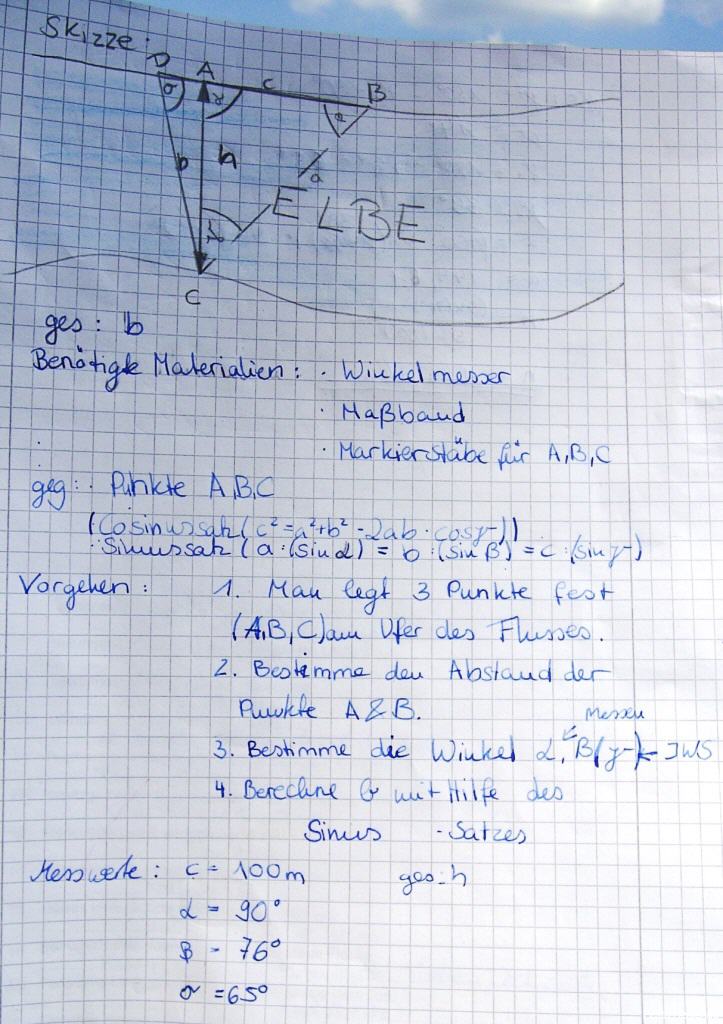 Skizze:
D A c B
σ α β
b h
a
ELBE
γ
C
ges: b
Benötigte Materialien: · Winkelmesser
· Maßband
· Markierstäbe für A,B,C
geg: · Punkte A,B,C
(Cosinussatz (c² = a²+b² - 2ab · cosγ))
· Sinussatz (a:(sin α) = b:(sin β) = c:(sin γ)
Vorgehen: 1. Man legt 3 Punkte fest
(A,B,C) am Ufer des Flusses.
2. Bestimme den Abstand der
Punkte A & B.
Messen
3. Bestimme die Winkel α, β(γ) ← IWS
4. Berechne b mit Hilfe des
Sinus - Satzes
Messwerte: c = 100m ges: h
α = 90°
β = 76°
σ = 65°